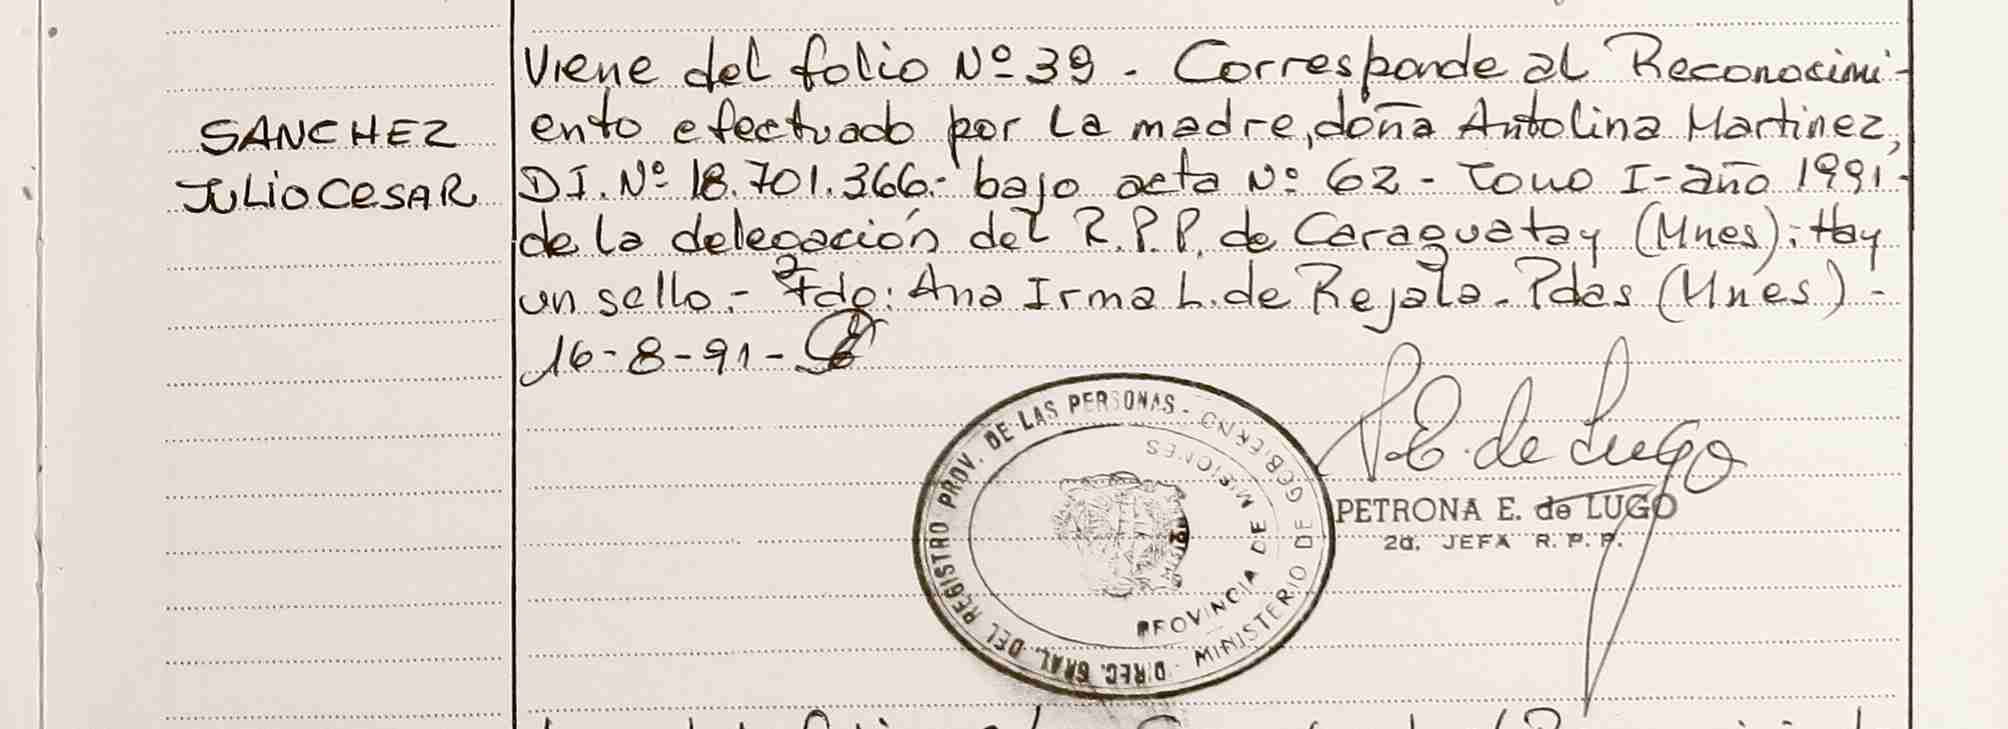 SANCHEZ
JULIO CESAR
Viene del folio Nº 39 - Corresponde al Reconocimi-
ento efectuado por la madre, doña Antolina Martinez,
DI. Nº 18.701.366.- bajo acta Nº 62 - Tomo I - año 1991-
de la delegación del R.P.P. de Caraguatay (Mnes); Hay
un sello.- Fdo: Ana Irma L. de Rejala. Pdas (Mnes) -
16-8-91-
P.E. de Lugo
PETRONA E. de LUGO
2a. JEFA R. P. P.
DIREC. GRAL. DEL REGISTRO PROV. DE LAS PERSONAS -
MINISTERIO DE GOBIERNO
PROVINCIA DE MISIONES